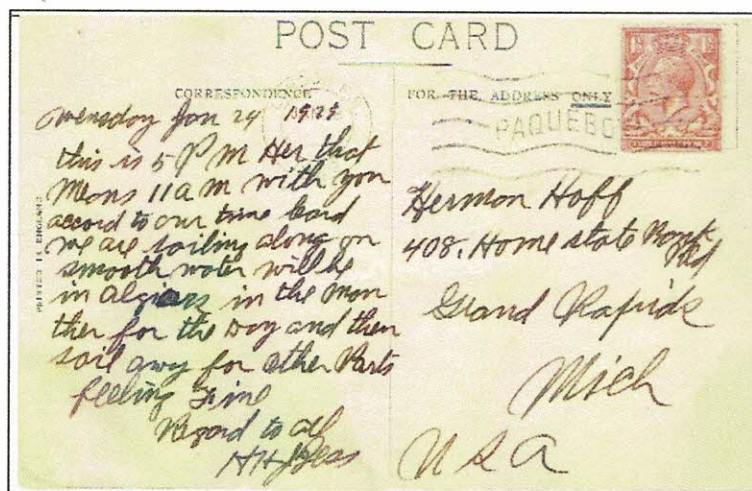 POST CARD
CORRESPONDENCE
FOR THE ADDRESS ONLY
PAQUEBO
PRINTED IN ENGLAND
Wensday Jan 24
this is 5 P M Her that
means 11 a m with you
accord to our time Card
we are sailing along on
smooth water will be
in Algiers in the Mon
ther for the Day and then
sail away for other Parts
feeling Fine
Regard to all
Herman Hoff
408. Home state Bank
Grand Rapids
Mich
U S A